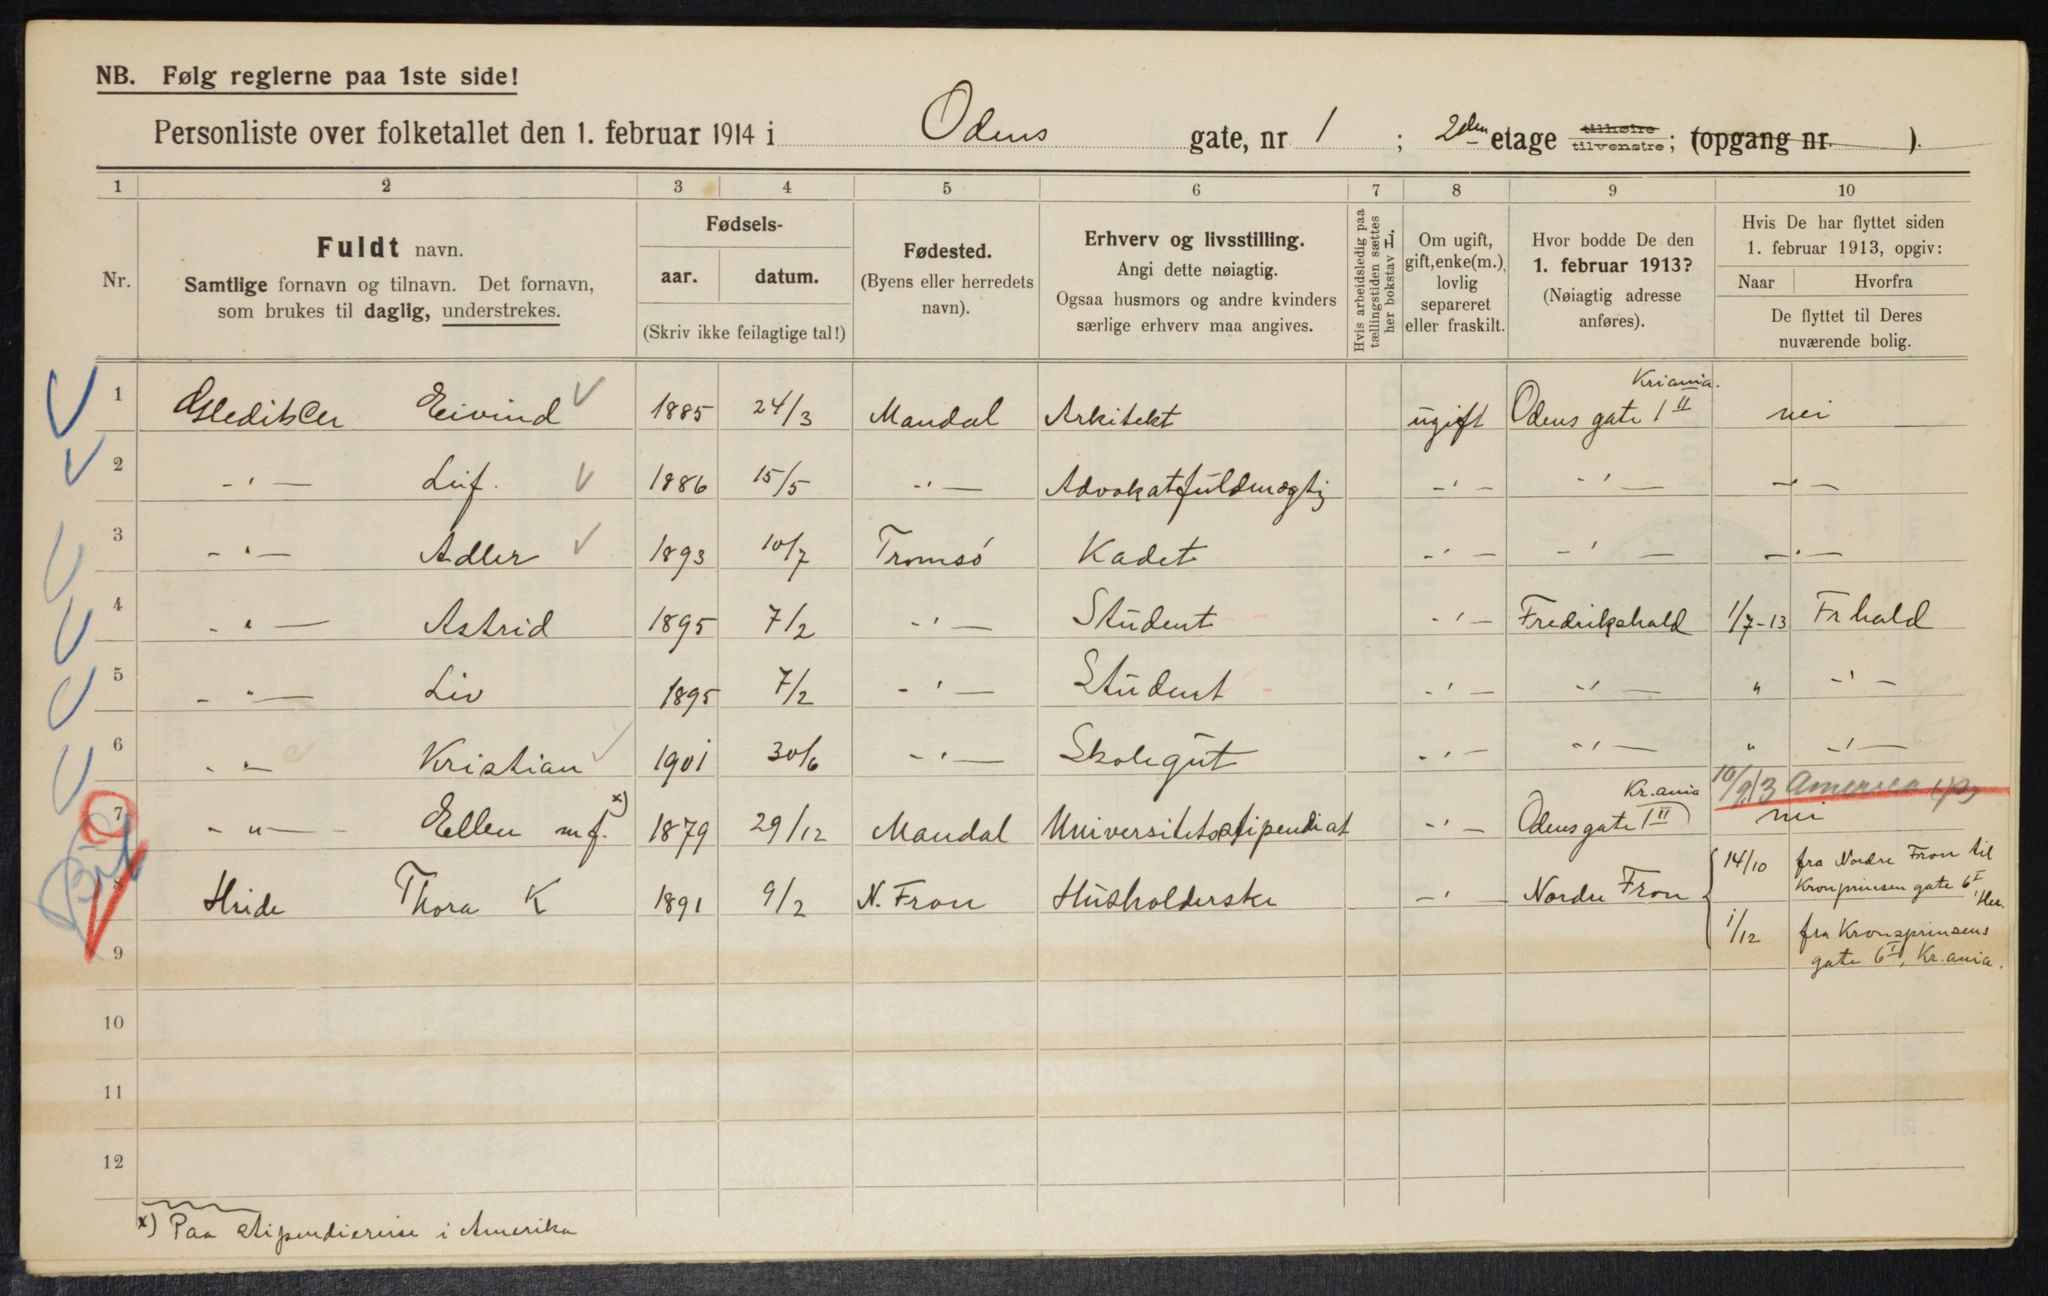 NB. Følg reglerne paa 1ste side!
Personliste over folketallet den 1. februar 1914 i Odens gate, nr. 1 ; 2den etage tilhøire tilvenstre; (opgang nr. ).
1 2 3 4 5 6 7 8 9 10
Nr.
Fuldt navn.
Samtlige fornavn og tilnavn. Det fornavn,
som brukes til daglig, understrekes.
Fødsels-
aar. datum.
(Skriv ikke feilagtige tal!)
Fødested.
(Byens eller herredets
navn).
Erhverv og livsstilling.
Angi dette nøiagtig.
Ogsaa husmors og andre kvinders
særlige erhverv maa angives.
Hvis arbeidsledig paa
tællingstiden sættes
her bokstav L.
Om ugift,
gift, enke(m.),
lovlig
separeret
eller fraskilt.
Hvor bodde De den
1. februar 1913?
(Nøiagtig adresse
anføres).
Hvis De har flyttet siden
1. februar 1913, opgiv:
Naar Hvorfra
De flyttet til Deres
nuværende bolig.
Kriania.
1 Gleditsch Eivind 1885 24/3 Mandal Arkitekt ugift Odens gate 1 II nei
2 -"- Leif. 1886 15/5 -"- Advokatfuldmægtig -"- -"- -"-
3 -"- Adler 1893 10/7 Tromsö Kadet -"- -"- -"-
4 -"- Astrid 1895 7/2 -"- Student -"- Fredrikshald 1/7-13 Frhald
5 -"- Liv 1895 7/2 -"- Student -"- -"- " -"-
6 -"- Kristian 1901 30/6 -"- Skolegut -"- -"- " -"-
Kr.ania 10/9 13 Amerika
7 -"- Ellen m f. x) 1879 29/12 Mandal Universitetsstipendiat -"- Odensgate 1 II nei
8 Hride Thora K 1891 9/2 N. Fron Husholderske -"- Nordre Fron 14/10 fra Nordre Fron til
Kronprinsens gate 6 I,
1/12 fra Kronsprinsens
gate 6 I, Kr.ania.
9
10
11
12
x) Paa stipendiereise i Amerika